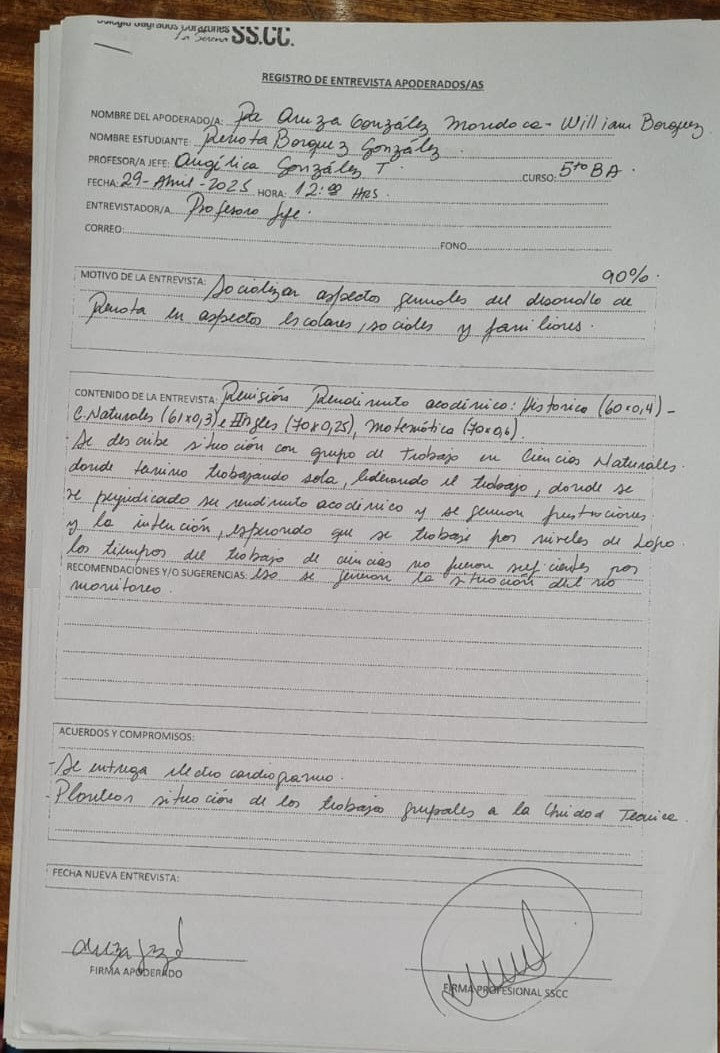 Colegio Sagrados Corazones
La Serena SS.CC.
REGISTRO DE ENTREVISTA APODERADOS/AS
NOMBRE DEL APODERADO/A: González Mondaca - William Borquez
NOMBRE ESTUDIANTE: Renata Borquez González
PROFESOR/A JEFE: Angélica González T. CURSO: 5to BA.
FECHA: 29-Abril-2025 HORA: 12:00 HRS.
ENTREVISTADOR/A: Profesora Jefe.
CORREO: FONO
90%.
MOTIVO DE LA ENTREVISTA: Socializar aspectos generales del desarrollo de
Renata en aspectos escolares, sociales y familiares.
CONTENIDO DE LA ENTREVISTA: Revisión Rendimiento académico: Historica (60x0,4) -
C. Naturales (61x0,3) e Ingles (70x0,25), Matemática (70x0,6).
Se describe situación con grupo de trabajo en Ciencias Naturales.
donde termino trabajando sola, liderando el trabajo, donde se
ve perjudicado su rendimiento académico y se generan frustraciones.
y la intención, esperando que se trabaje por niveles de logro.
los tiempos del trabajo de ciencias no fueron suficientes por
RECOMENDACIONES Y/O SUGERENCIAS: eso se generan la situación del no
monitoreo.
ACUERDOS Y COMPROMISOS:
- Se entrega electro cardiograma.
- Plantear situación de los trabajos grupales a la Unidad Tecnica.
FECHA NUEVA ENTREVISTA:
FIRMA APODERADO
FIRMA PROFESIONAL SSCC